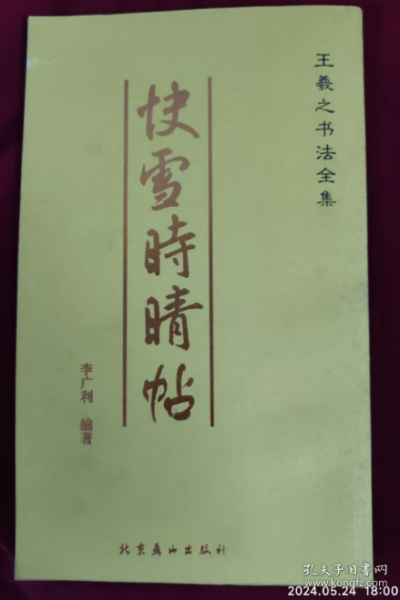 王羲之书法全集
快雪時晴帖
李广利 编著
北京燕山出版社
孔夫子旧书网
www.kongfz.com
2024.05.24 18:00